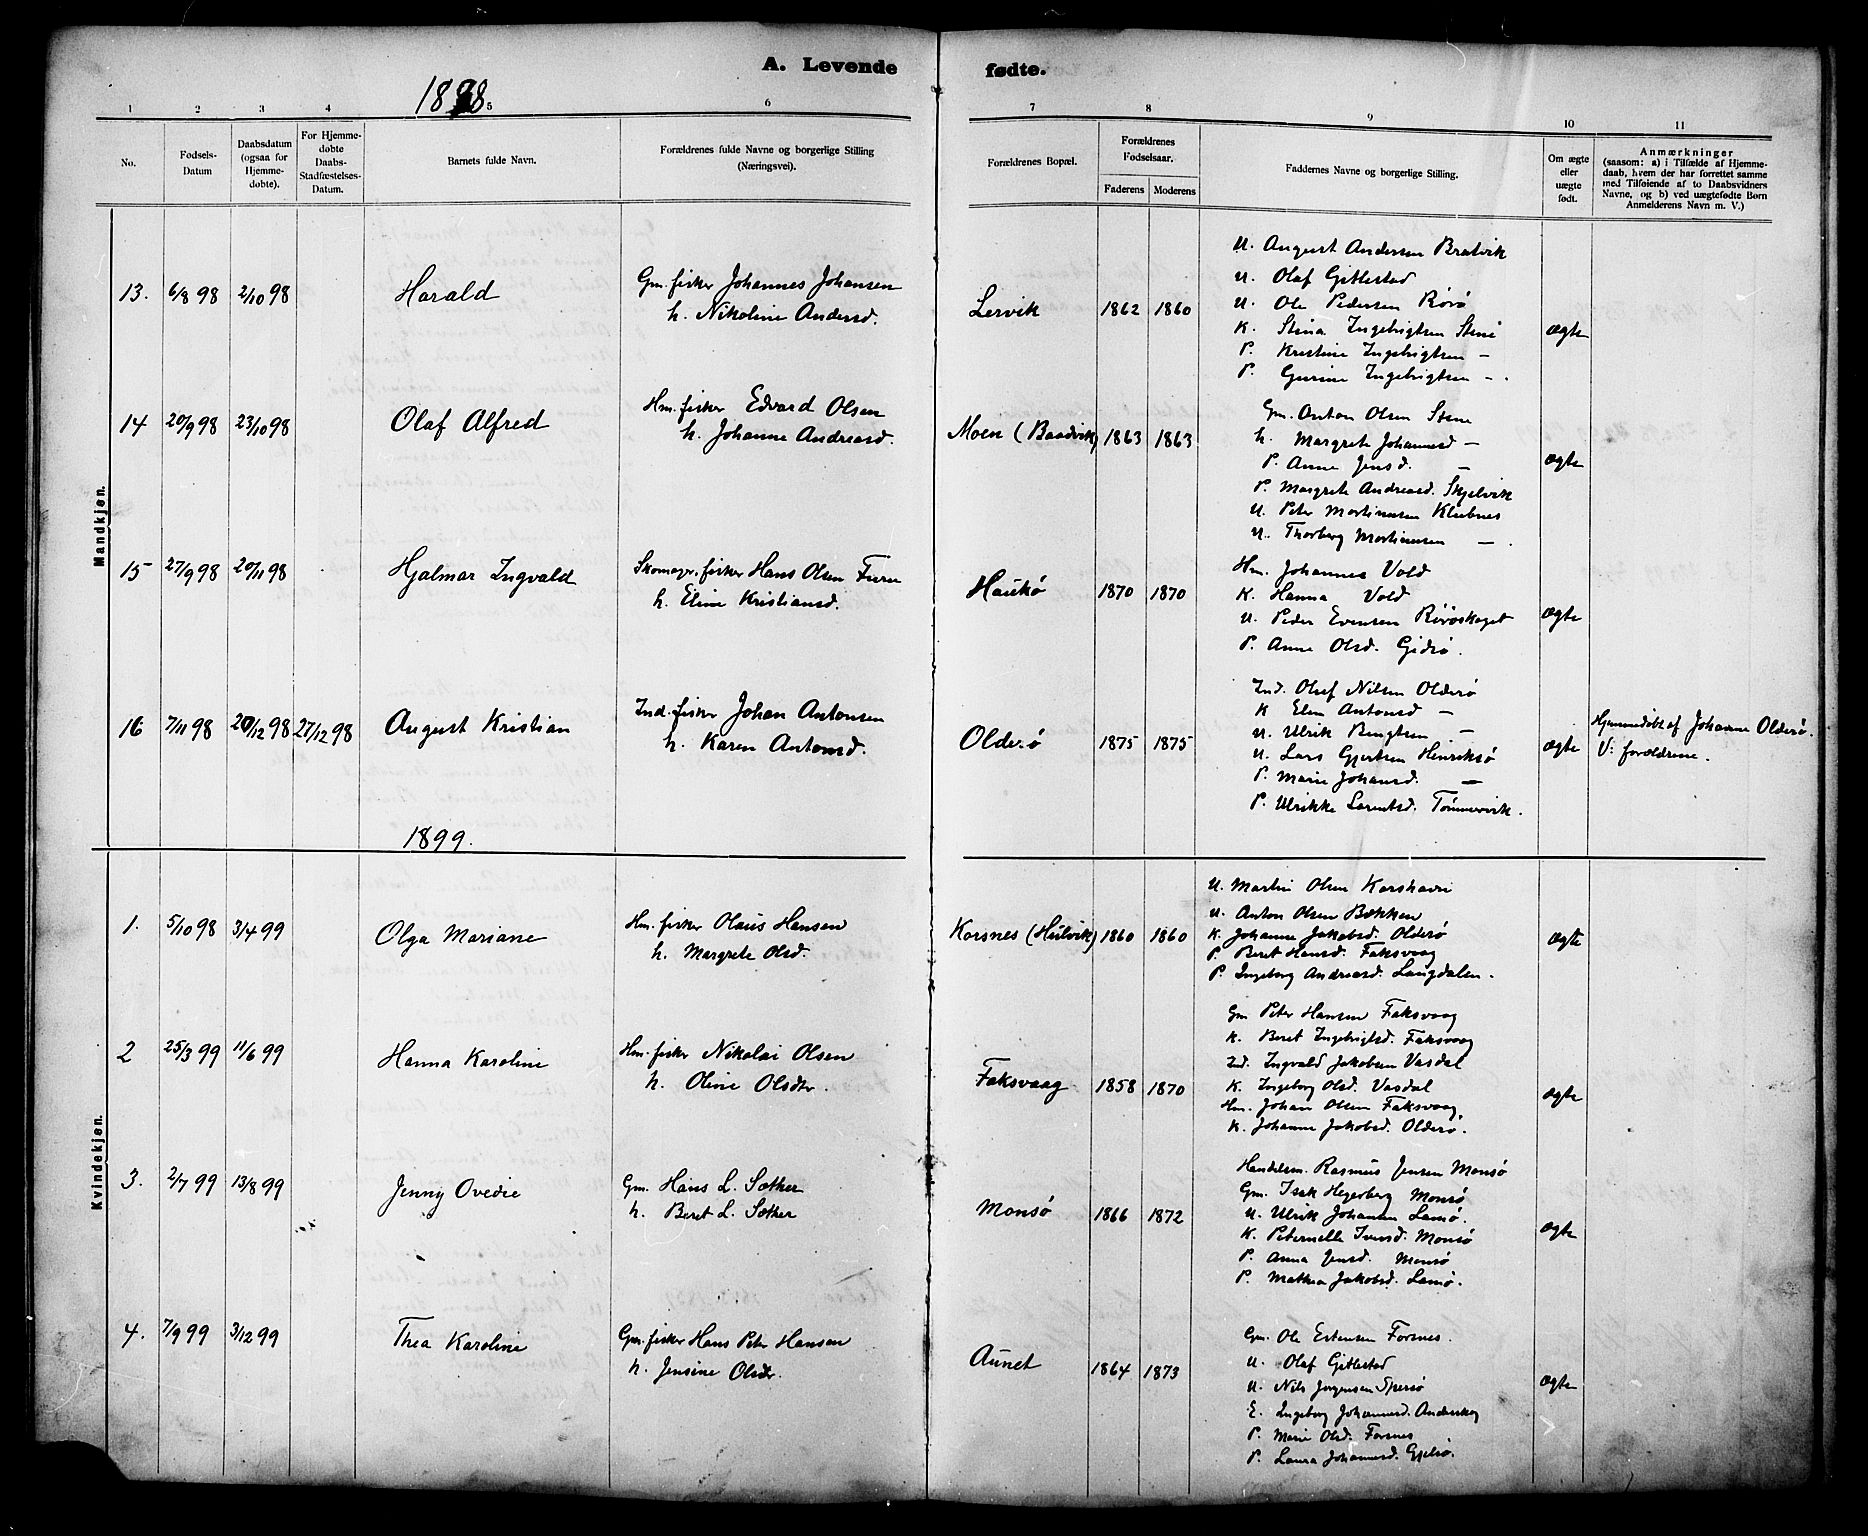 A. Levende fødte.
1898
1 2 3 4 5 6 7 8 9 10 11
No.
Fødsels-
Datum
Daabsdatum
(ogsaa for
Hjemme-
døbte).
For Hjemme-
døbte
Daabs-
Stadfæstelses-
Datum.
Barnets fulde Navn.
Forældrenes fulde Navne og borgerlige Stilling
(Næringsvei).
Forældrenes Bopæl.
Forældrenes
Fødselsaar.
Faderens Moderens
Faddernes Navne og borgerlige Stilling.
Om ægte
eller
uægte
født.
Anmærkninger
(saasom: a) i Tilfælde af Hjemme-
daab, hvem der har forrettet samme
med Tilføiende af to Daabsvidners
Navne, og b) ved uægtefødte Børn
Anmelderens Navn m. V.)
Mandkjøn.
13. 6/8 98 2/10 98 Harald
Gm. fisker Johannes Johansen
h. Nikoline Andersd.
Lervik 1862 1860
U. August Andersen Bratvik
U. Olaf Gittestad
U. Ole Pedersen Rörö
K. Stina Ingebrigtsen Stene
P. Kristine Ingebrigtsen —
P. Gurine Ingebrigtsen — .
ægte
14 20/9 98 23/10 98 Olaf Alfred
Hm. fisker Edvard Olsen
h. Johanne Andreasd.
Moen (Baadvik) 1863 1863
Gm. Anton Olsen Stene
h. Margrete Johannesd —
P. Anne Jensd. —
P. Margrete Andreasd. Skjelvik
U. Peter Martinussen Klubnes
U. Thorberg Martinussen — .
ægte
15 27/9 98 20/11 98 Hjalmar Ingvald
Skomager, fisker Hans Olsen Furu
h. Eline Kristiansd.
Haukö 1870 1870
Hm. Johannes Vold
K. Hanna Vold
U. Peder Evensen Röröskaget
P. Anne Olsd. Gjedsö.
ægte
16 7/11 98 20/12 98 27/12 98 August Kristian
Ind. fisker Johan Antonsen
h. Karen Antonsd.
Olderö 1875 1875
Ind. Oluf Nilsen Olderö
K Elen Antonsd —
U. Ulrik Bengtsen —
U. Lars Gjertsen Henriksö
P. Marie Johansd. —
P. Ulrikke Larentsd. Tömmervik.
ægte
Hjemmedöbt af Johanne Olderö.
V: forældrene.
1899.
Kvindekjøn.
1. 5/10 98 3/4 99 Olga Mariane
Hm. fisker Olaus Hansen
h. Margrete Olsd.
Korsnes (Hulvik) 1860 1860
U. Martin Olsen Korshavn
U. Anton Olsen Bækken
K. Johanne Jakobsd. Olderö
P. Beret Hansd. Faksvaag
P. Ingeborg Andreasd. Langdalen.
ægte
2 25/3 99 11/6 99 Hanna Karoline
Hm. fisker Nikolai Olsen
h. Oline Olsdtr.
Faksvaag 1858 1870
Gm Peter Hansen Faksvaag
K. Beret Ingebrigtsd. Faksvaag
Ind. Ingvald Jakobsen Vasdal
K. Ingeborg Olsd. Vasdal
Hm. Johan Olsen Faksvaag.
K. Johanne Jakobsd. Olderö.
ægte
3. 2/7 99 13/8 99 Jenny Ovedie
Gm. Hans L. Sæther
h. Beret L. Sæther
Monsö 1866 1872
Handelsm. Rasmus Jensen Monsö
Gm. Isak Hegerberg Monsö
U. Ulrik Johansen Lamö.
K. Peternelle Iversd. Monsö
P. Anna Jensd. Monsö
P. Mathea Jakobsd. Lamö.
ægte
4. 7/9 99 3/12 99 Thea Karoline
Gm. fisker Hans Peter Hansen
h. Jensine Olsdtr.
Aunet 1864 1873
Gm. Ole Estensen Forsnes.
U. Olaf Gittestad
U. Nils Jörgensen
E. Ingeborg Johannesd. Anderskog
P. Marie Olsd. Forsnes
P. Laura Johannesd. Gjelsö.
ægte